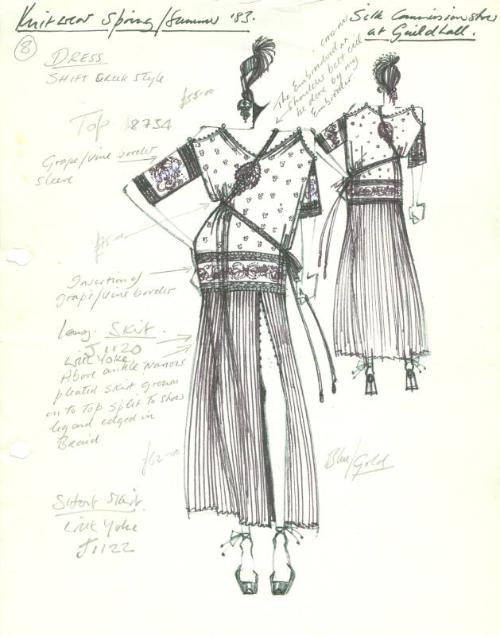 Knitwear Spring/Summer '83.
Silk Commission show
at Guildhall.
8
DRESS
SHIFT GREEK STYLE
The Embroidered
Shoulders
be done by my
Embroiderer.
Top 8734
Grape/vine border
sleeve
Insertion of
grape/vine border
Long. Skirt.
J1120
Link Yoke
Above ankle narrow
pleated skirt grown
on to Top split to show
leg and edged in
Braid
£62-00
Blue/Gold
Short Skirt.
Link Yoke
J1122